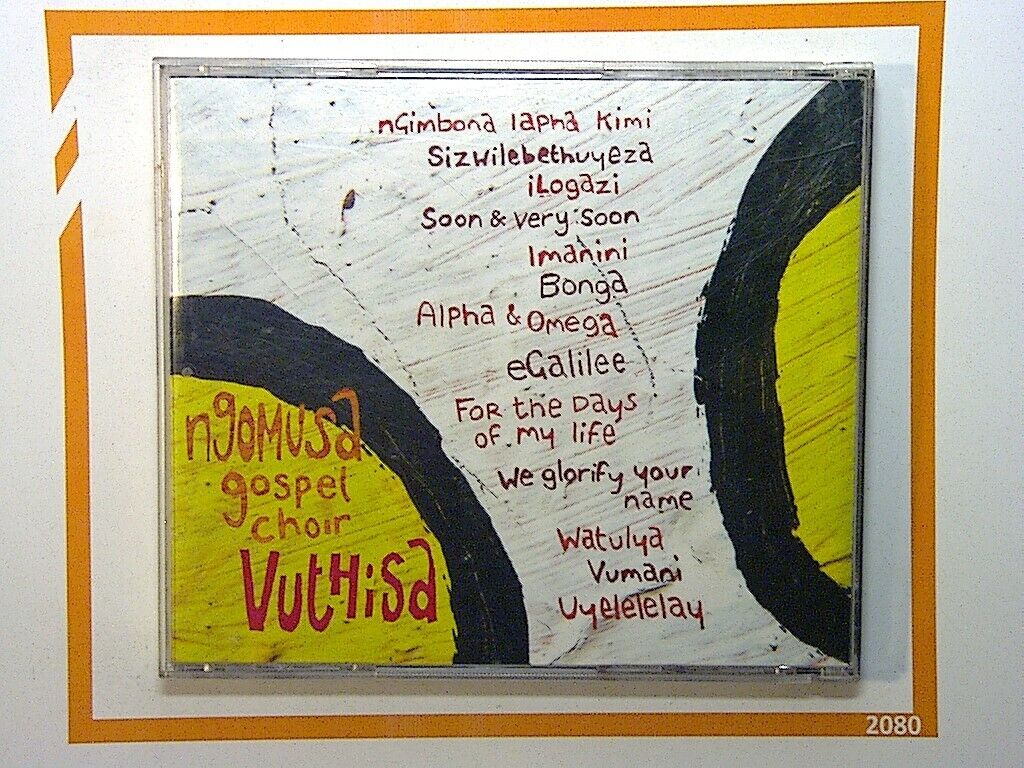 nGimbona lapha Kimi
Sizwilebethuyeza
iLogazi
Soon & very soon
Imanini
Bonga
Alpha & Omega
eGalilee
For the Days
of my life
We glorify your
name
Watulya
Vumani
Uyelelelay
ngomusa
gospel
choir
Vuthisa
2080